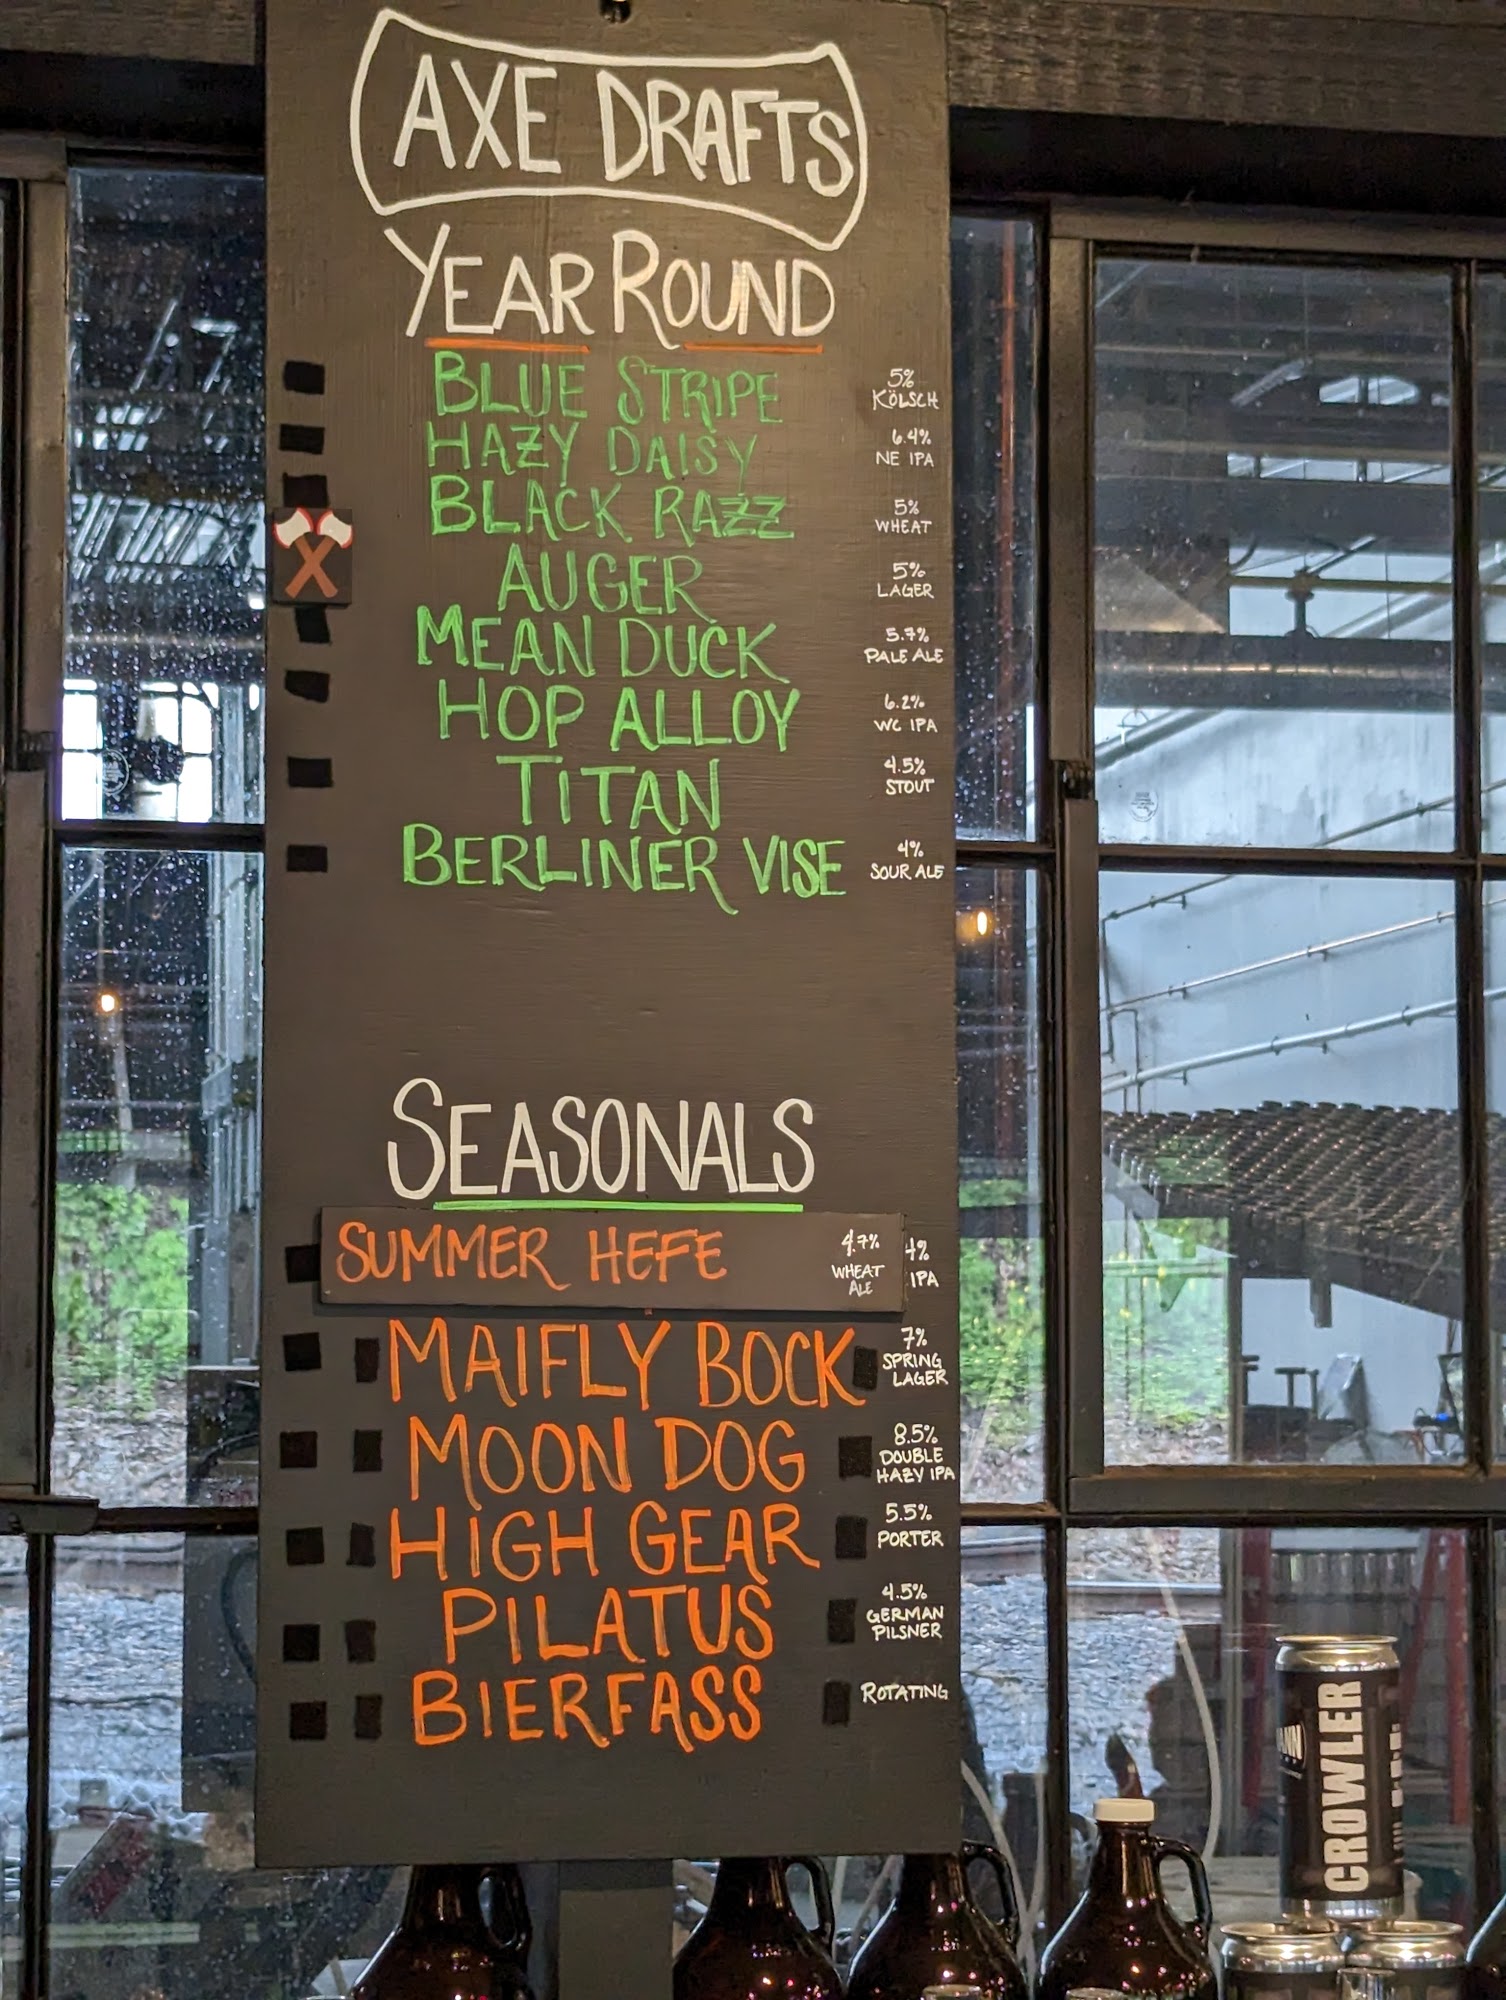 AXE DRAFTS
YEAR ROUND
BLUE STRIPE
5%
KÖLSCH
HAZY DAISY
6.4%
NE IPA
BLACK RAZZ
5%
WHEAT
AUGER
5%
LAGER
MEAN DUCK
5.7%
PALE ALE
HOP ALLOY
6.2%
WC IPA
TITAN
4.5%
STOUT
BERLINER VISE
4%
SOUR ALE
SEASONALS
SUMMER HEFE
4.7%
WHEAT
ALE
%
IPA
MAIFLY BOCK
7%
SPRING
LAGER
MOON DOG
8.5%
DOUBLE
HAZY IPA
HIGH GEAR
5.5%
PORTER
PILATUS
4.5%
GERMAN
PILSNER
BIERFASS
ROTATING
CROWLER